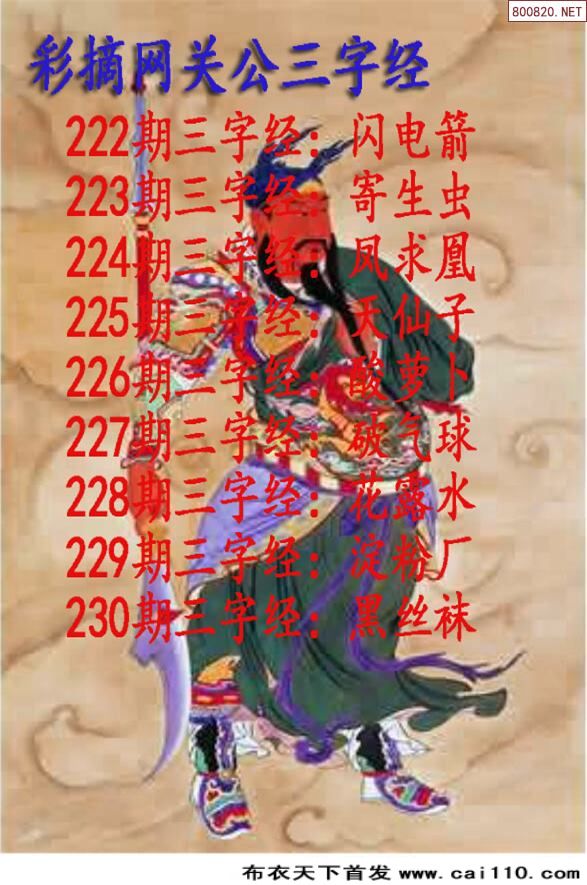 800820.NET
彩摘网关公三字经
222期三字经：闪电箭
223期三字经：寄生虫
224期三字经：凤求凰
225期三字经：天仙子
226期三字经：酸萝卜
227期三字经：破气球
228期三字经：花露水
229期三字经：淀粉厂
230期三字经：黑丝袜
布衣天下首发 www.cai110.com